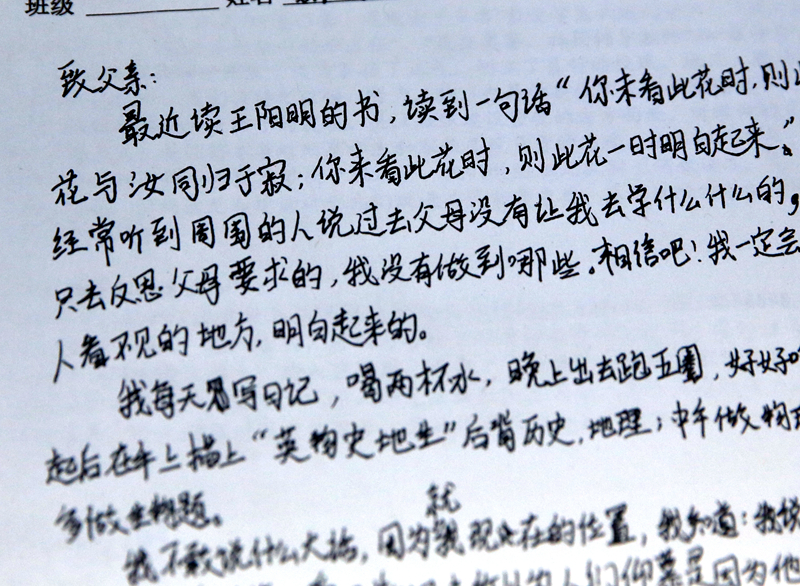 班级 姓名
致父亲：
最近读王阳明的书，读到一句话“你未看此花时，则此
花与汝同归于寂；你来看此花时，则此花一时明白起来”。
经常听到周围的人说过去父母没有让我去学什么什么的，
只去反思父母要求的，我没有做到哪些。相信吧！我一定会
人看不见的地方，明白起来的。
我每天写日记，喝两杯水，晚上出去跑五圈，好好吃
起后在车上 “英物史地生”后背历史，地理；中午做物理
多做生物题。
就
我不敢说什么大话，因为我现在的位置，我知道：我说
人们仰慕是因为他